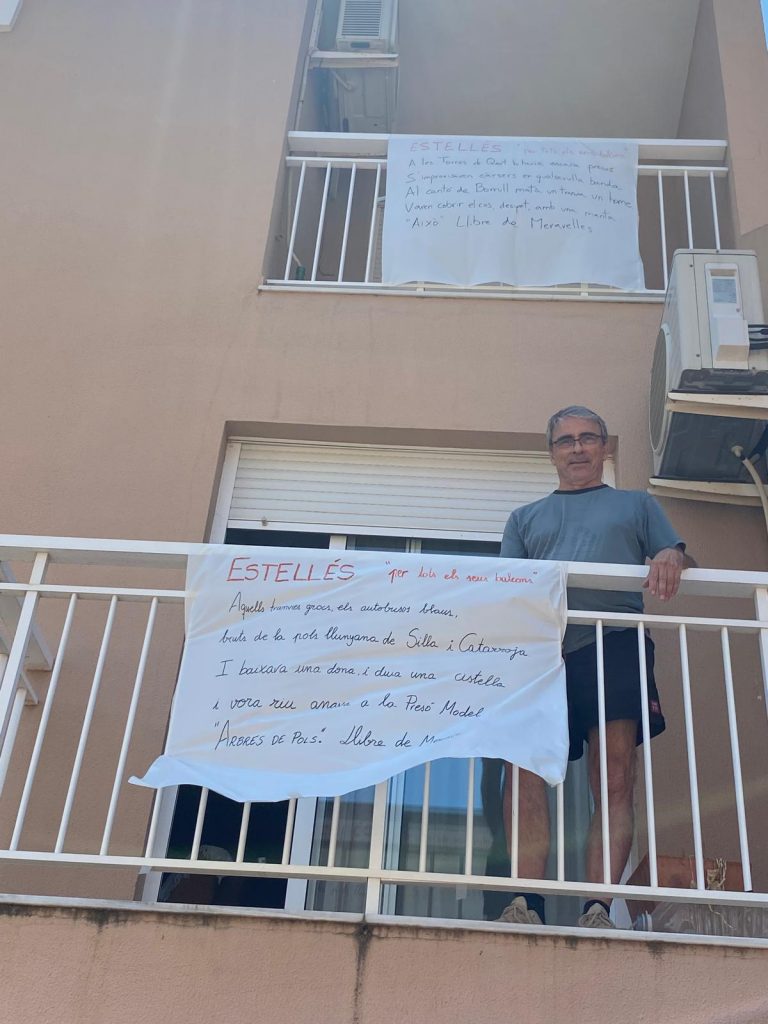 ESTELLÉS "per tots els seus balcons"
A les Torres de Quart hi havia encara presos
S'improvisaven càrsers en qualsevulla banda
Al cantó de Borrull matà un tramvia un home
Varen cobrir el cos, despet, amb una manta
"Això" Llibre de Meravelles
ESTELLÉS "per tots els seus balcons"
Aquells tramvies grocs, els autobusos blaus,
bruts de la pols llunyana de Silla i Catarroja
I baixava una dona, i duia una cistella
i vora riu anava a la Presó Model
"ARBRES DE POLS." Llibre de